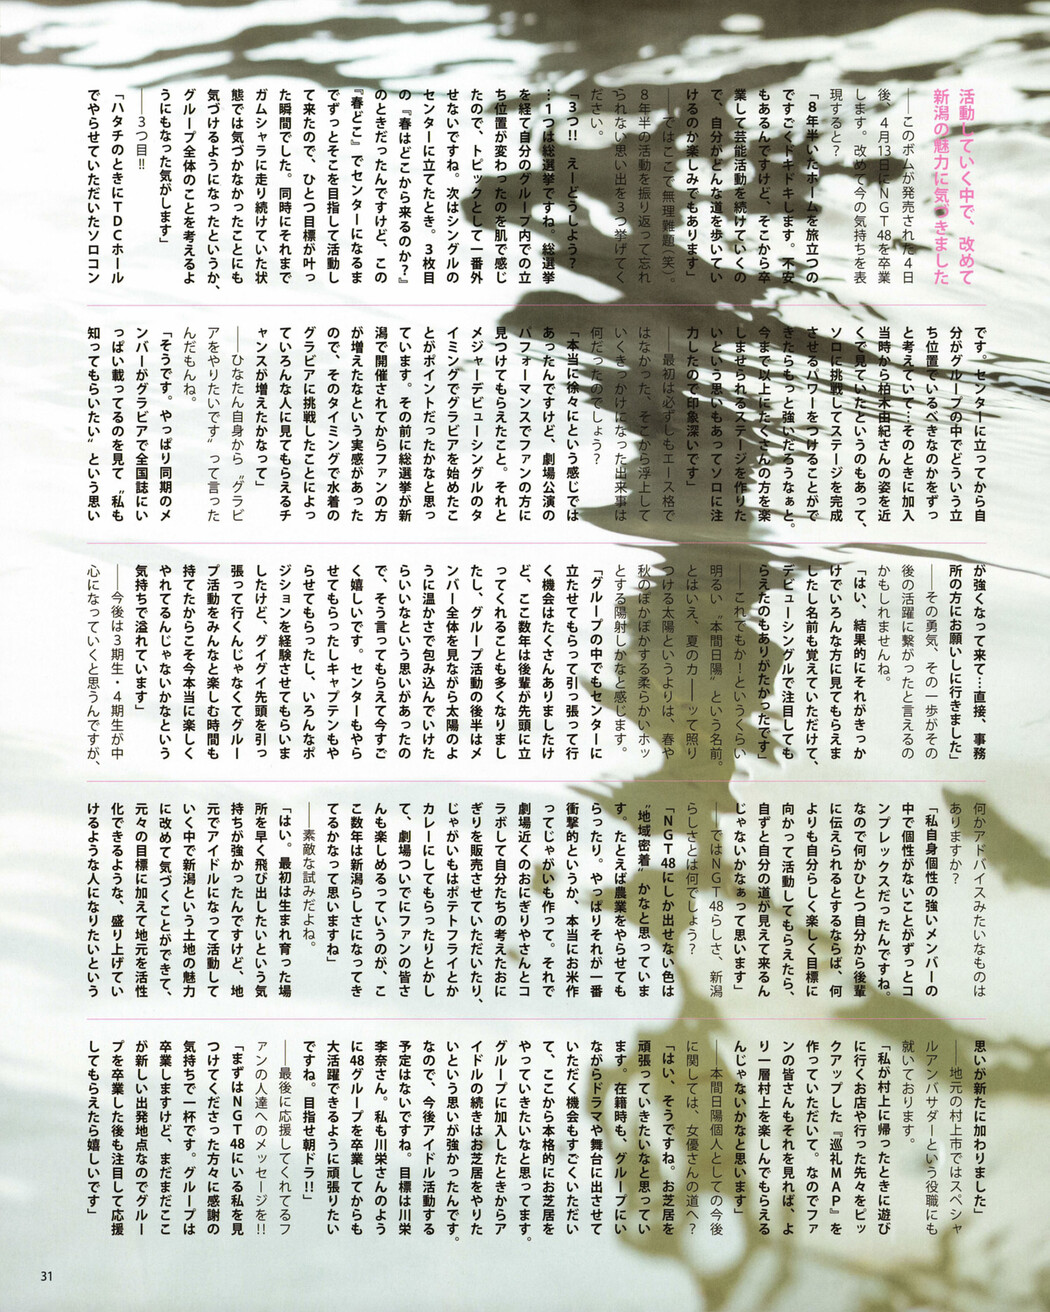 活動していく中で、改めて
新潟の魅力に気づきました
――このボムが発売された４日
後、４月13日にＮＧＴ48を卒業
します。改めて今の気持ちを表
現すると？
「８年半いたホームを旅立つの
ですごくドキドキします。不安
もあるんですけど、そこから卒
業して芸能活動を続けていくの
で、自分がどんな道を歩いてい
けるのか楽しみでもあります」
――ではここで無理難題（笑）。
８年半の活動を振り返って忘れ
られない思い出を３つ挙げてく
ださい。
「３つ!!　えーどうしよう？
…１つは総選挙ですね。総選挙
を経て自分のグループ内での立
ち位置が変わったのを肌で感じ
たので、トピックとして一番外
せないですね。次はシングルの
センターに立てたとき。３枚目
の『春はどこから来るのか？』
のときだったんですけど、この
『春どこ』でセンターになるま
でずっとそこを目指して活動し
て来たので、ひとつ目標が叶っ
た瞬間でした。同時にそれまで
ガムシャラに走り続けていた状
態では気づかなかったことにも
気づけるようになったというか、
グループ全体のことを考えるよ
うにもなった気がします」
――３つ目!!
「ハタチのときにＴＤＣホール
でやらせていただいたソロコン
です。センターに立ってから自
分がグループの中でどういう立
ち位置でいるべきなのかをずっ
と考えていて…そのときに加入
当時から柏木由紀さんの姿を近
くで見ていたというのもあって、
ソロに挑戦してステージを完成
させるパワーをつけることがで
きたらもっと強いだろうなぁと。
今まで以上にたくさんの方を楽
しませられるステージを作りた
いという思いもあってソロに注
力したので印象深いです」
――最初は必ずしもエース格で
はなかった、そこから浮上して
いくきっかけになった出来事は
何だったのでしょう？
「本当に徐々にという感じでは
あったんですけど、劇場公演の
パフォーマンスでファンの方に
見つけてもらえたこと。それと
メジャーデビューシングルのタ
イミングでグラビアを始めたこ
とがポイントだったかなと思っ
ています。その前に総選挙が新
潟で開催されてからファンの方
が増えたなという実感があった
ので、そのタイミングで水着の
グラビアに挑戦したことによっ
ていろんな人に見てもらえるチ
ャンスが増えたかなって」
――ひなたん自身から〝グラビ
アをやりたいです〟って言った
んだもんね。
「そうです。やっぱり同期のメ
ンバーがグラビアで全国誌にい
っぱい載ってるのを見て〝私も
知ってもらいたい〟という思い
が強くなって来て…直接、事務
所の方にお願いしに行きました」
――その勇気、その一歩がその
後の活躍に繋がったと言えるの
かもしれませんね。
「はい、結果的にそれがきっか
けでいろんな方に見てもらえま
したし名前も覚えていただけて、
デビューシングルで注目しても
らえたのもありがたかったです」
――これでもか！というくらい
明るい〝本間日陽〟という名前。
とはいえ、夏のカーッて照り
つける太陽というよりは、春や
秋のぽかぽかする柔らかいホッ
とする陽射しかなと感じます。
「グループの中でもセンターに
立たせてもらって引っ張って行
く機会はたくさんありましたけ
ど、ここ数年は後輩が先頭に立
ってくれることも多くなりまし
たし、グループ活動の後半はメ
ンバー全体を見ながら太陽のよ
うに温かさで包み込んでいけた
らいいなという思いがあったの
で、そう言ってもらえて今すご
く嬉しいです。センターもやら
せてもらったしキャプテンもや
らせてもらったし、いろんなポ
ジションを経験させてもらいま
したけど、グイグイ先頭を引っ
張って行くんじゃなくてグルー
プ活動をみんなと楽しむ時間も
持てたからこそ今本当に楽しく
やれてるんじゃないかなという
気持ちで溢れています」
――今後は３期生・４期生が中
心になっていくと思うんですが、
何かアドバイスみたいなものは
ありますか？
「私自身個性の強いメンバーの
中で個性がないことがずっとコ
ンプレックスだったんですね。
なので何かひとつ自分から後輩
に伝えられるとするならば、何
よりも自分らしく楽しく目標に
向かって活動してもらえたら、
自ずと自分の道が見えて来るん
じゃないかなぁって思います」
――ではＮＧＴ48らしさ、新潟
らしさとは何でしょう？
「ＮＧＴ48にしか出せない色は
〝地域密着〟かなと思っていま
す。たとえば農業をやらせても
らったり。やっぱりそれが一番
衝撃的というか、本当にお米作
ってじゃがいも作って。それで
劇場近くのおにぎりやさんとコ
ラボして自分たちの考えたおに
ぎりを販売させていただいたり、
じゃがいもはポテトフライとか
カレーにしてもらったりとかし
て、劇場ついでにファンの皆さ
んも楽しめるっていうのが、こ
こ数年は新潟らしさになってき
てるかなって思いますね」
――素敵な試みだよね。
「はい。最初は生まれ育った場
所を早く飛び出したいという気
持ちが強かったんですけど、地
元でアイドルになって活動して
いく中で新潟という土地の魅力
に改めて気づくことができて、
元々の目標に加えて地元を活性
化できるような、盛り上げてい
けるような人になりたいという
思いが新たに加わりました」
――地元の村上市ではスペシャ
ルアンバサダーという役職にも
就いております。
「私が村上に帰ったときに遊び
に行くお店や行った先々をピッ
クアップした『巡礼ＭＡＰ』を
作っていただいて。なのでファ
ンの皆さんもそれを見れば、よ
り一層村上を楽しんでもらえる
んじゃないかなと思います」
――本間日陽個人としての今後
に関しては、女優さんの道へ？
「はい、そうですね。お芝居を
頑張っていきたいなと思ってい
ます。在籍時も、グループにい
ながらドラマや舞台に出させて
いただく機会もすごくいただい
て、ここから本格的にお芝居を
やっていきたいなと思ってます。
グループに加入したときからア
イドルの続きはお芝居をやりた
いという思いが強かったんです。
なので、今後アイドル活動する
予定はないですね。目標は川栄
李奈さん。私も川栄さんのよう
に48グループを卒業してからも
大活躍できるように頑張りたい
ですね。目指せ朝ドラ!!」
――最後に応援してくれてるフ
ァンの人達へのメッセージを!!
「まずはＮＧＴ48にいる私を見
つけてくださった方々に感謝の
気持ちで一杯です。グループは
卒業しますけど、まだまだここ
が新しい出発地点なのでグルー
プを卒業した後も注目して応援
してもらえたら嬉しいです」
31